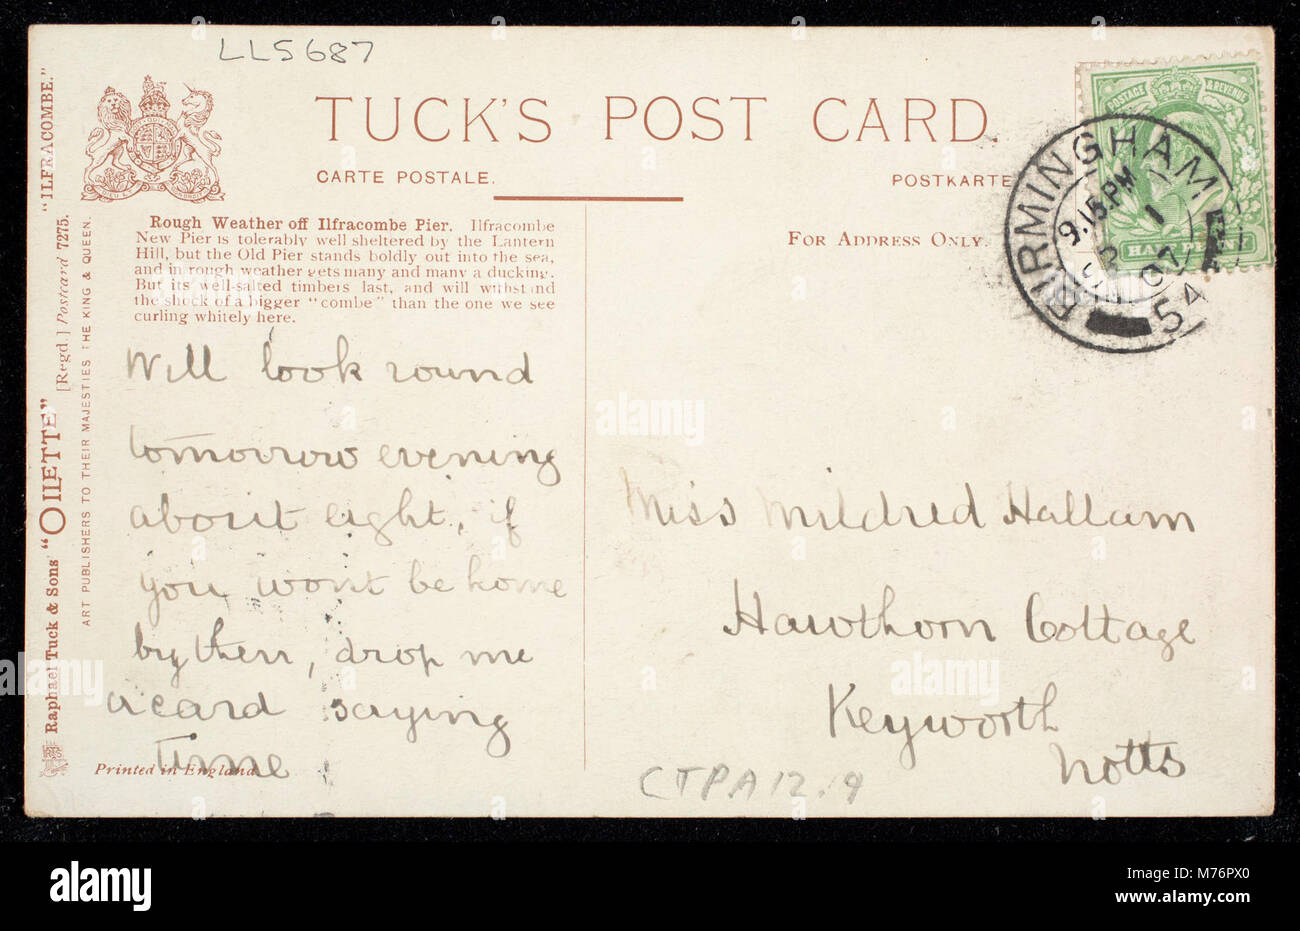 LL5687
TUCK'S POST CARD.
CARTE POSTALE.
POSTKARTE
FOR ADDRESS ONLY.
POSTAGE & REVENUE
HALFPENNY
BIRMINGHAM
9.15 PM
1
07
54
"ILFRACOMBE."
Raphael Tuck & Sons' "OILETTE" [Regd.] Postcard 7275.
ART PUBLISHERS TO THEIR MAJESTIES THE KING & QUEEN.
Rough Weather off Ilfracombe Pier. Ilfracombe
New Pier is tolerably well sheltered by the Lantern
Hill, but the Old Pier stands boldly out into the sea,
and in rough weather gets many and many a ducking.
But its well-salted timbers last, and will withstand
the shock of a bigger "combe" than the one we see
curling whitely here.
Will look round
tomorrow evening
about eight, if
you wont be home
by then, drop me
a card saying
time
Printed in England.
Miss Mildred Hallam
Hawthorn Cottage
Keyworth
Notts
CTPA12.9
alamy
M76PX0
www.alamy.com